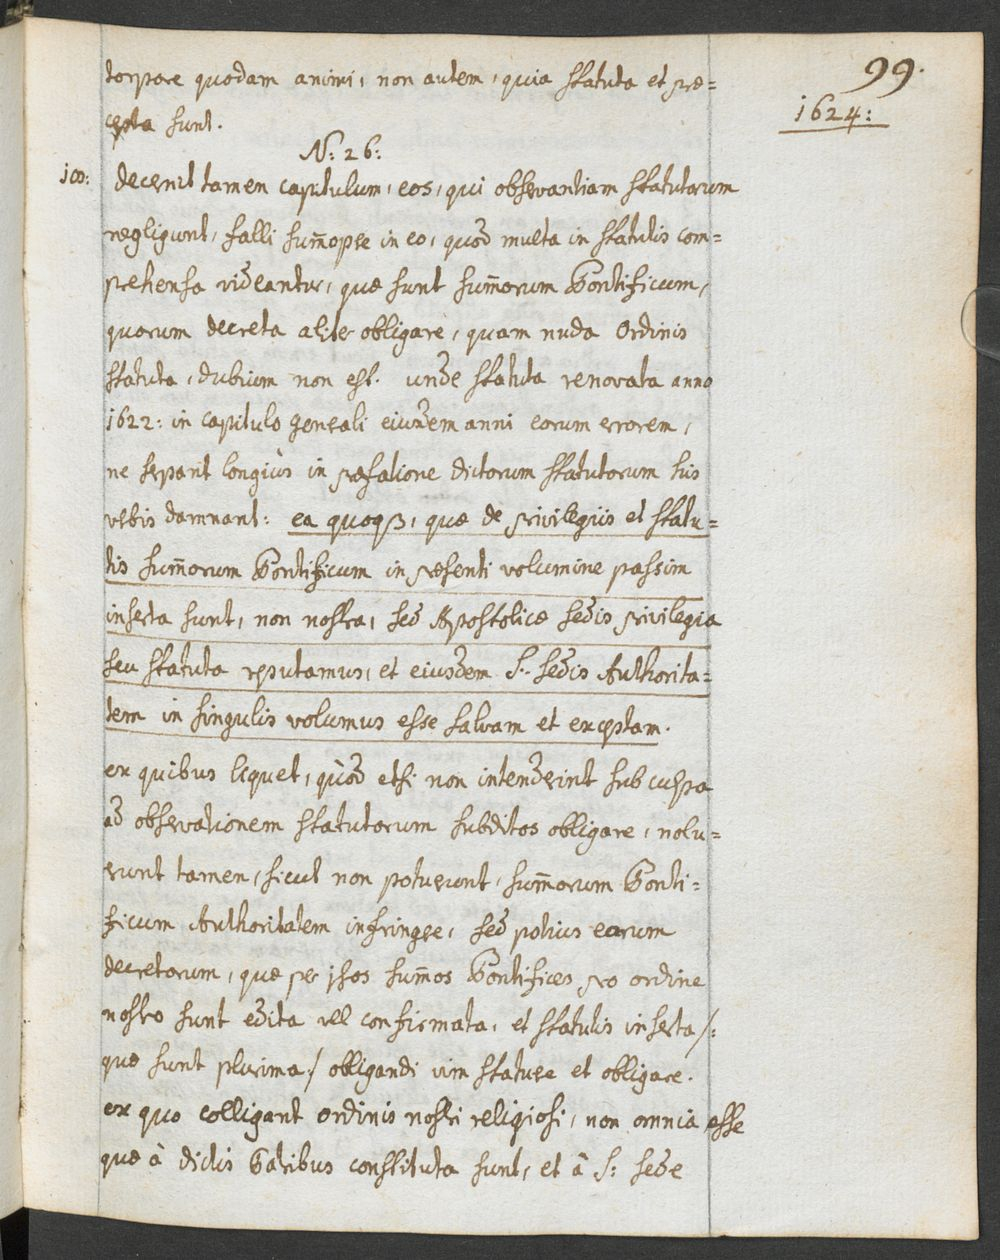 99.
1624:
torpore quodam animi, non autem, quia statuta et præ=
cepta sunt.
N: 26:
100: decernit tamen capitulum, eos, qui observantiam statutorum
negligunt, falli sum̄opere in eo, quod multa in statutis com=
prehensa videantur, quæ sunt sum̄orum Pontificum,
quorum decreta aliter obligare, quam nuda Ordinis
statuta, dubium non est. unde statuta renovata anno
1622: in capitulo generali eiusdem anni eorum errorem,
ne serpant longiùs in præfatione dictorum statutorum his
verbis damnant: ea quoqß, quæ de privilegiis et statu=
tis sum̄orum Pontificum in præsenti volumine passim
inserta sunt, non nostra, sed Apostolicæ sedis privilegia
seu statuta reputamus, et eiusdem S. sedis Authorita=
tem in singulis volumus esse salvam et exceptam.
ex quibus liquet, quòd etsi non intenderint sub culpa
ad observationem statutorum subditos obligare, nolu=
erunt tamen, sicut non potuerunt, sum̄orum Ponti=
ficum Authoritatem infringere, sed potius eorum
decretorum, quæ per ipsos sum̄os Pontifices pro ordine
nostro sunt edita vel confirmata, et statutis inserta /:
quæ sunt plurima / obligandi vim statuere et obligare.
ex quo colligant ordinis nostri religiosi, non omnia esse
quæ à dictis Patribus constituta sunt, et â S: sede